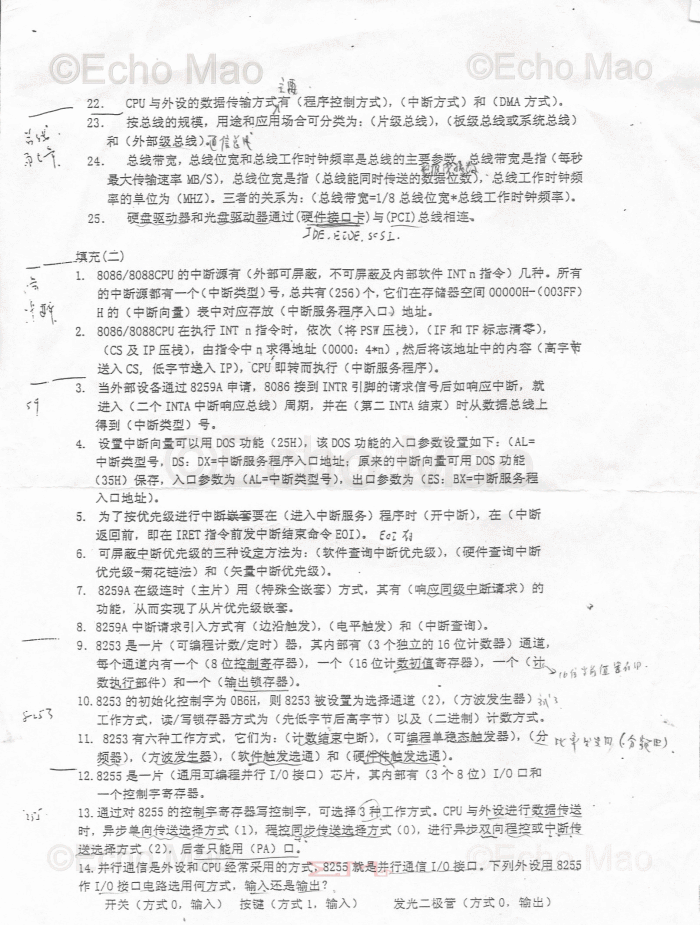 ©Echo Mao ©Echo Mao
主要
22. CPU与外设的数据传输方式有(程序控制方式),(中断方式)和(DMA方式)。
23. 按总线的规模,用途和应用场合可分类为:(片级总线),(板级总线或系统总线)
和(外部级总线)通信总线
24. 总线带宽,总线位宽和总线工作时钟频率是总线的主要参数,总线带宽是指(每秒
最大传输速率MB/S),总线位宽是指(总线能同时传送的数据位数),总线工作时钟频
率的单位为(MHZ)。三者的关系为:(总线带宽=1/8总线位宽*总线工作时钟频率)。
25. 硬盘驱动器和光盘驱动器通过(硬件接口卡)与(PCI)总线相连。
IDE.EIDE.SCSI.
填充(二)
1. 8086/8088CPU的中断源有(外部可屏蔽,不可屏蔽及内部软件INT n指令)几种。所有
的中断源都有一个(中断类型)号,总共有(256)个,它们在存储器空间00000H-(003FF)
H的(中断向量)表中对应存放(中断服务程序入口)地址。
2. 8086/8088CPU在执行INT n指令时,依次(将PSW压栈),(IF和TF标志清零),
(CS及IP压栈),由指令中n求得地址(0000:4*n),然后将该地址中的内容(高字节
送入CS,低字节送入IP),CPU即转而执行(中断服务程序)。
3. 当外部设备通过8259A申请,8086接到INTR引脚的请求信号后如响应中断,就
进入(二个INTA中断响应总线)周期,并在(第二INTA结束)时从数据总线上
得到(中断类型)号。
59
4. 设置中断向量可以用DOS功能(25H),该DOS功能的入口参数设置如下:(AL=
中断类型号,DS:DX=中断服务程序入口地址;原来的中断向量可用DOS功能
(35H)保存,入口参数为(AL=中断类型号),出口参数为(ES:BX=中断服务程
入口地址)。
©Echo Mao
5. 为了按优先级进行中断嵌套要在(进入中断服务)程序时(开中断),在(中断
返回前,即在IRET指令前发中断结束命令EOI)。 EOI
6. 可屏蔽中断优先级的三种设定方法为:(软件查询中断优先级),(硬件查询中断
优先级-菊花链法)和(矢量中断优先级)。
7. 8259A在级连时(主片)用(特殊全嵌套)方式,其有(响应同级中断请求)的
功能,从而实现了从片优先级嵌套。
8. 8259A中断请求引入方式有(边沿触发),(电平触发)和(中断查询)。
9. 8253是一片(可编程计数/定时)器,其内部有(3个独立的16位计数器)通道,
每个通道内有一个(8位控制寄存器),一个(16位计数初值寄存器),一个(计
数执行部件)和一个(输出锁存器)。
10. 8253的初始化控制字为0B6H,则8253被设置为选择通道(2),(方波发生器)
工作方式,读/写锁存器方式为(先低字节后高字节)以及(二进制)计数方式。
8253
11. 8253有六种工作方式,它们为:(计数结束中断),(可编程单稳态触发器),(分
频器),(方波发生器),(软件触发选通)和(硬件件触发选通)。
12. 8255是一片(通用可编程并行I/O接口)芯片,其内部有(3个8位)I/O口和
一个控制字寄存器。
13. 通过对8255的控制字寄存器写控制字,可选择3种工作方式。CPU与外设进行数据传送
时,异步单向传送选择方式(1),程控同步传送选择方式(0),进行异步双向程控或中断传
送选择方式(2),后者只能用(PA)口。
©Echo Mao ©Echo Mao
14. 并行通信是外设和CPU经常采用的方式,8255就是并行通信I/O接口。下列外设用8255
作I/O接口电路选用何方式,输入还是输出?
开关(方式0,输入) 按键(方式1,输入) 发光二极管(方式0,输出)